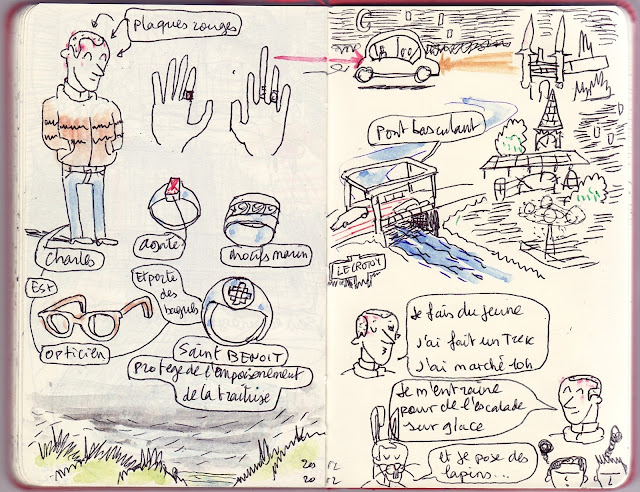 plaques rouges
Charles
Est
opticien
Et porte
des
bagues
agate
anneaux marin
Saint BENOIT
Protège de l'empoisonement
de la traîtrise
20
20
Pont basculant
LE CROTOY
Je fais du jeune
j'ai fait un Trek
J'ai marché 10h
Je m'entraine
pour de l'escalade
sur glace
et je pose des
lapins...